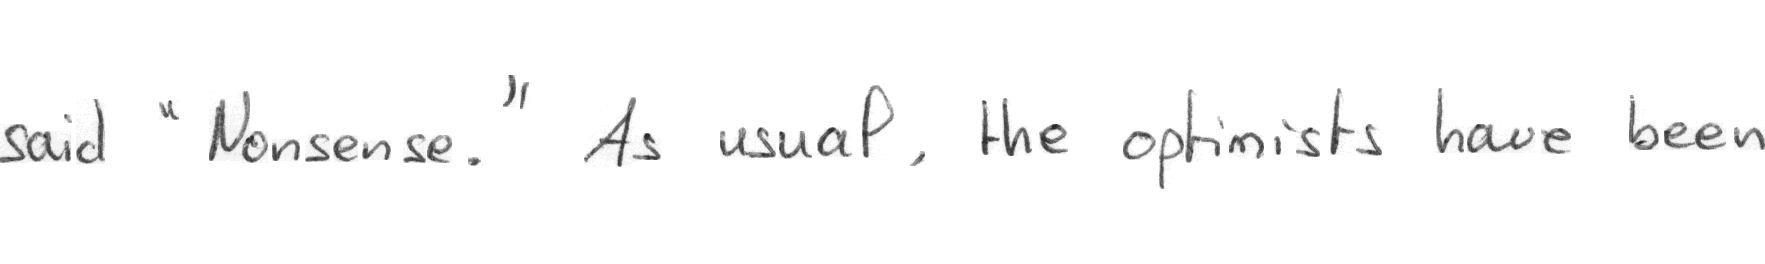 said "Nonsense." As usual, the optimists have been